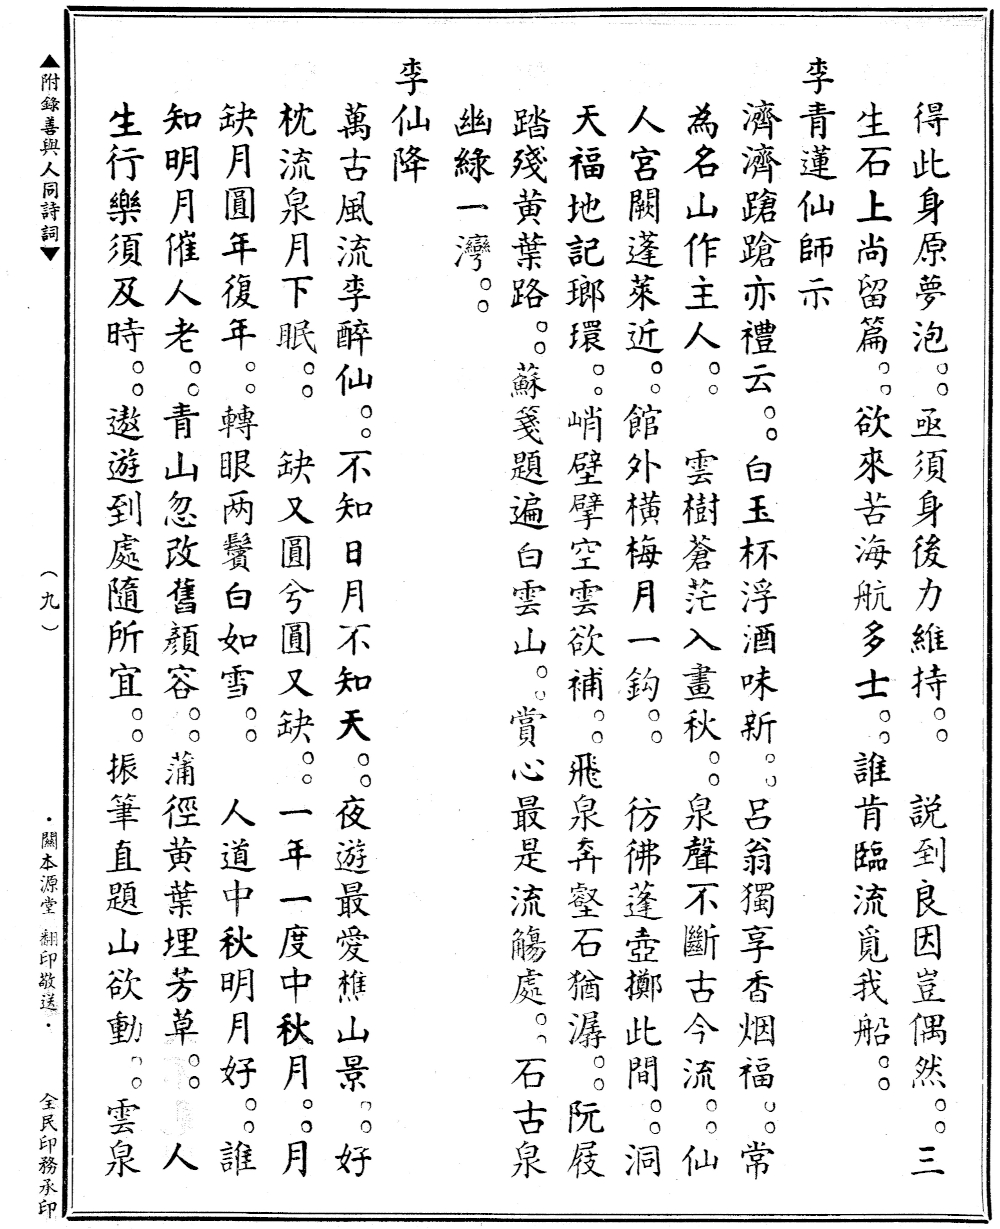 得此身原夢泡。。亟須身後力維持。。　說到良因豈偶然。。三
生石上尚留篇。。欲來苦海航多士。。誰肯臨流覓我船。。
李青蓮仙師示
濟濟蹌蹌亦禮云。。白玉杯浮酒味新。。呂翁獨享香烟福。。常
為名山作主人。。　雲樹蒼茫入畫秋。。泉聲不斷古今流。。仙
人宮闕蓬萊近。。館外橫梅月一鈎。。　彷彿蓬壺擲此間。。洞
天福地記瑯環。。峭壁擘空雲欲補。。飛泉奔壑石猶潺。。阮屐
踏殘黃葉路。。蘇箋題遍白雲山。。賞心最是流觴處。。石古泉
幽綠一灣。。
李仙降
萬古風流李醉仙。。不知日月不知天。。夜遊最愛樵山景。。好
枕流泉月下眠。。　缺又圓兮圓又缺。。一年一度中秋月。。月
缺月圓年復年。。轉眼两鬢白如雪。。　人道中秋明月好。。誰
知明月催人老。。青山忽改舊顏容。。蒲徑黃葉埋芳草。。　人
生行樂須及時。。遨遊到處隨所宜。。振筆直題山欲動。。雲泉
▲附錄善與人同詩詞▼
（九）
·關本源堂 翻印敬送·
全民印務承印